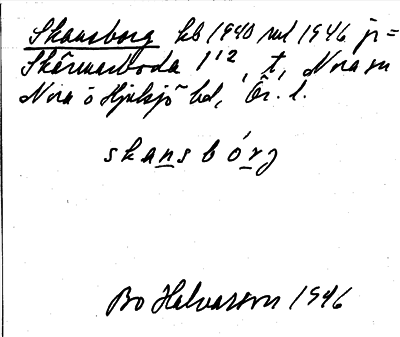 Skansborg kb 1940 rul 1946 jr=
Skärmarboda 1¹², t, Nora sn
Nora o Hjulsjö bd, Ör. l.
skansbórg
Bo Halvarson 1946